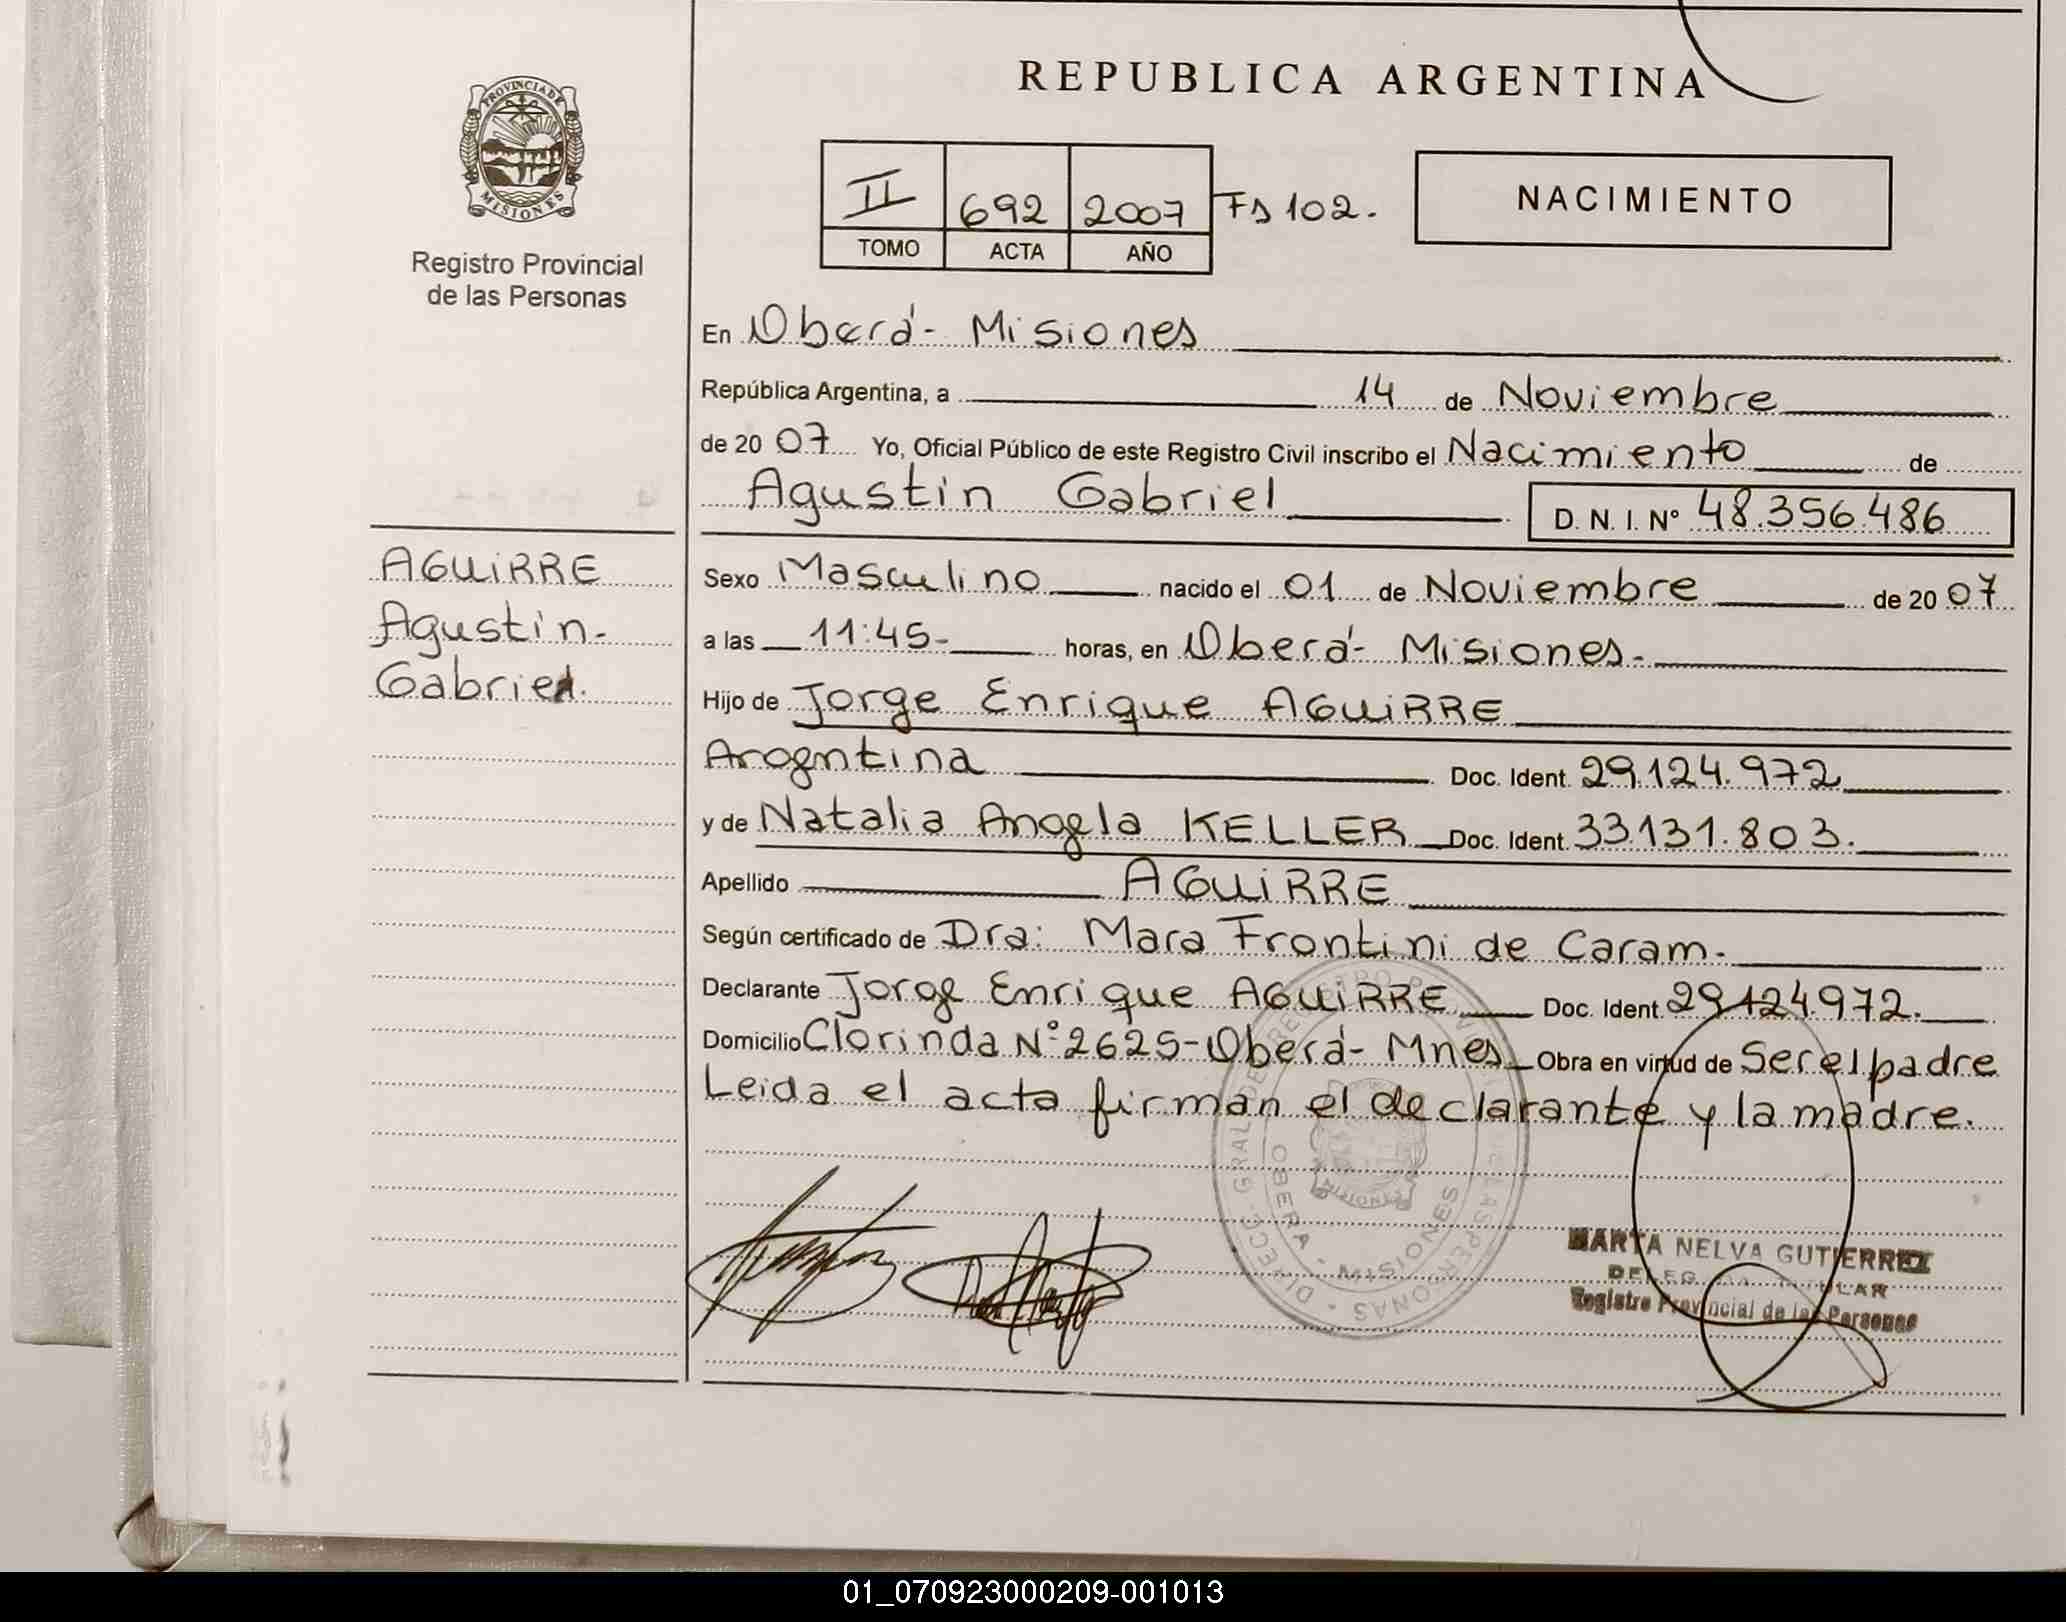 REPUBLICA ARGENTINA
PROVINCIA DE
MISIONES
Registro Provincial
de las Personas
II 692 2007 Fs 102.
TOMO ACTA AÑO
NACIMIENTO
En Oberá - Misiones
República Argentina, a 14 de Noviembre
de 20 07 Yo, Oficial Público de este Registro Civil inscribo el Nacimiento de
Agustin Gabriel D. N. I. Nº 48.356.486
AGUIRRE
Agustin-
Gabriel.
Sexo Masculino nacido el 01 de Noviembre de 20 07
a las 11:45- horas, en Oberá - Misiones.-
Hijo de Jorge Enrique AGUIRRE
Arogntina Doc. Ident. 29.124.972
y de Natalia Angela KELLER Doc. Ident. 33.131.803.
Apellido AGUIRRE
Según certificado de Dra: Mara Frontini de Caram.-
Declarante Jorge Enrique AGUIRRE Doc. Ident. 29.124.972.
Domicilio Clorinda Nº 2625-Oberá- Mnes Obra en virtud de Ser el padre
Leida el acta firman el declarante y la madre.
OBERA - MISIONES
MARTA NELVA GUTIERREZ
DELEGADA TITULAR
Registro Provincial de las Personas
01_070923000209-001013